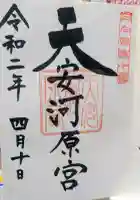 天安河原宮
令和二年 四月十日